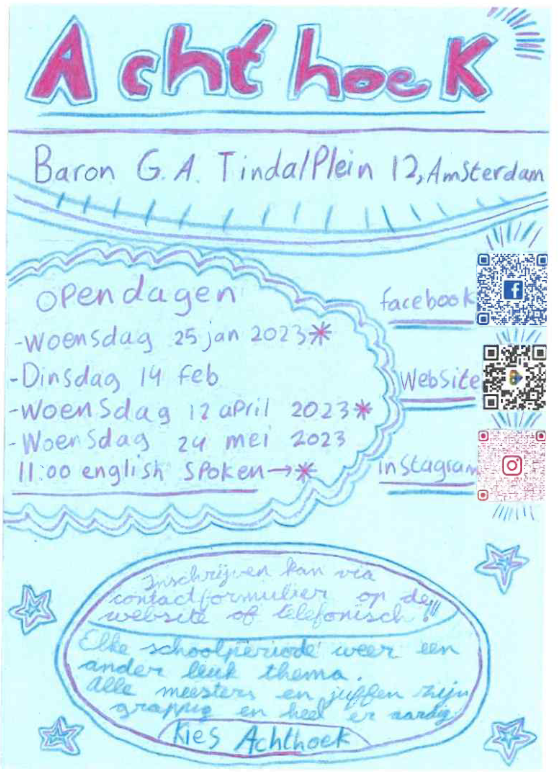 Achthoek
Baron G.A. TindalPlein 12, Amsterdam
opendagen
-Woensdag 25 jan 2023*
-Dinsdag 14 feb
-Woensdag 12 april 2023*
-Woensdag 24 mei 2023
11:00 english spoken→*
facebook
Website
instagram
Inschrijven kan via
contactformulier op de
website of telefonisch!!
Elke schoolperiode weer een
ander leuk thema.
Alle meesters en juffen zijn
grappig en heel er aardig.
Kies Achthoek